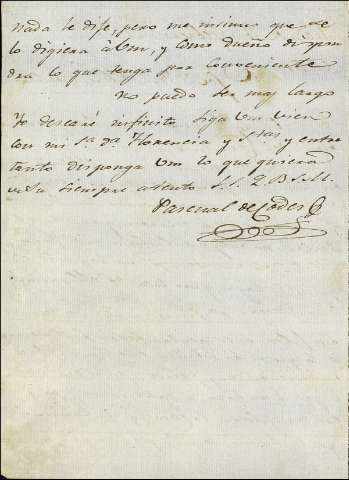 nada le dise, pero me insinuo que se
lo digiera à Vm, y como dueño dispon
dra lo que tenga por conveniente
No puedo ser muy largo
Yo deseare infinito siga Vm bien
con mi Sa. Da. Florencia y y entre
tanto disponga Vm lo que quiera
de su siempre atento S. S. Q. B. S. M.
Pascual de